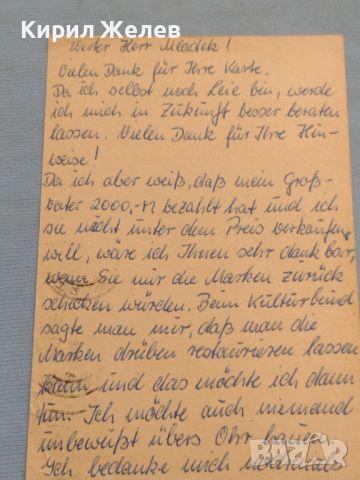 Кирил Желев
Werter Herr Mladek!
Vielen Dank für Ihre Karte.
Da ich selbst noch Leie bin, werde
ich mich in Zukunft besser beraten
lassen. Vielen Dank für Ihre Hin-
weise!
Da ich aber weiß, daß mein Groß-
vater 2000,-M bezahlt hat und ich
sie nicht unter dem Preis verkaufen
will, wäre ich Ihnen sehr dankbar,
wenn Sie mir die Marken zurück
schicken würden. Beim Kulturbund
sagte man mir, daß man die
Marken drüben restaurieren lassen
kann und das möchte ich dann
tun. Ich möchte auch niemand
unbewußt übers Ohr hauen.
Ich bedanke mich nochmals
bazar.bg